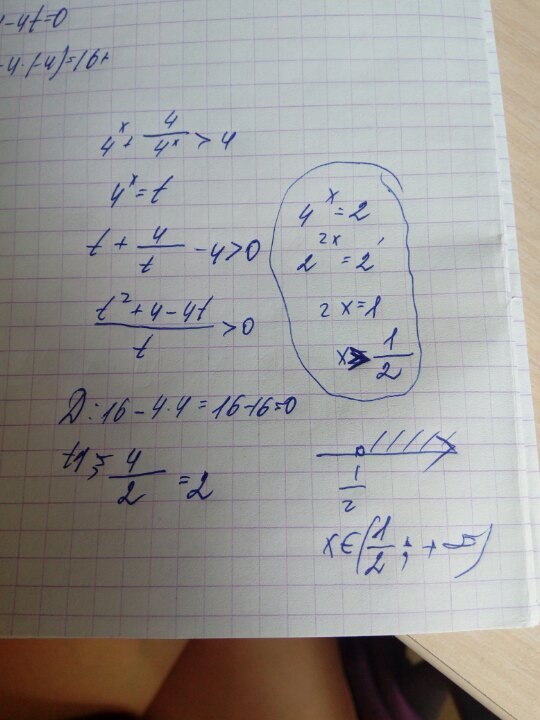 -4t=0
-4·(-4)=16+
4^x + 4/4^x > 4
4^x = t
t + 4/t - 4 > 0
(t² + 4 - 4t)/t > 0
D: 16 - 4·4 = 16-16=0
t1 = 4/2 = 2
4^x = 2
2^{2x} = 2^1
2x = 1
x > 1/2
1/2
x ∈ (1/2; +∞)